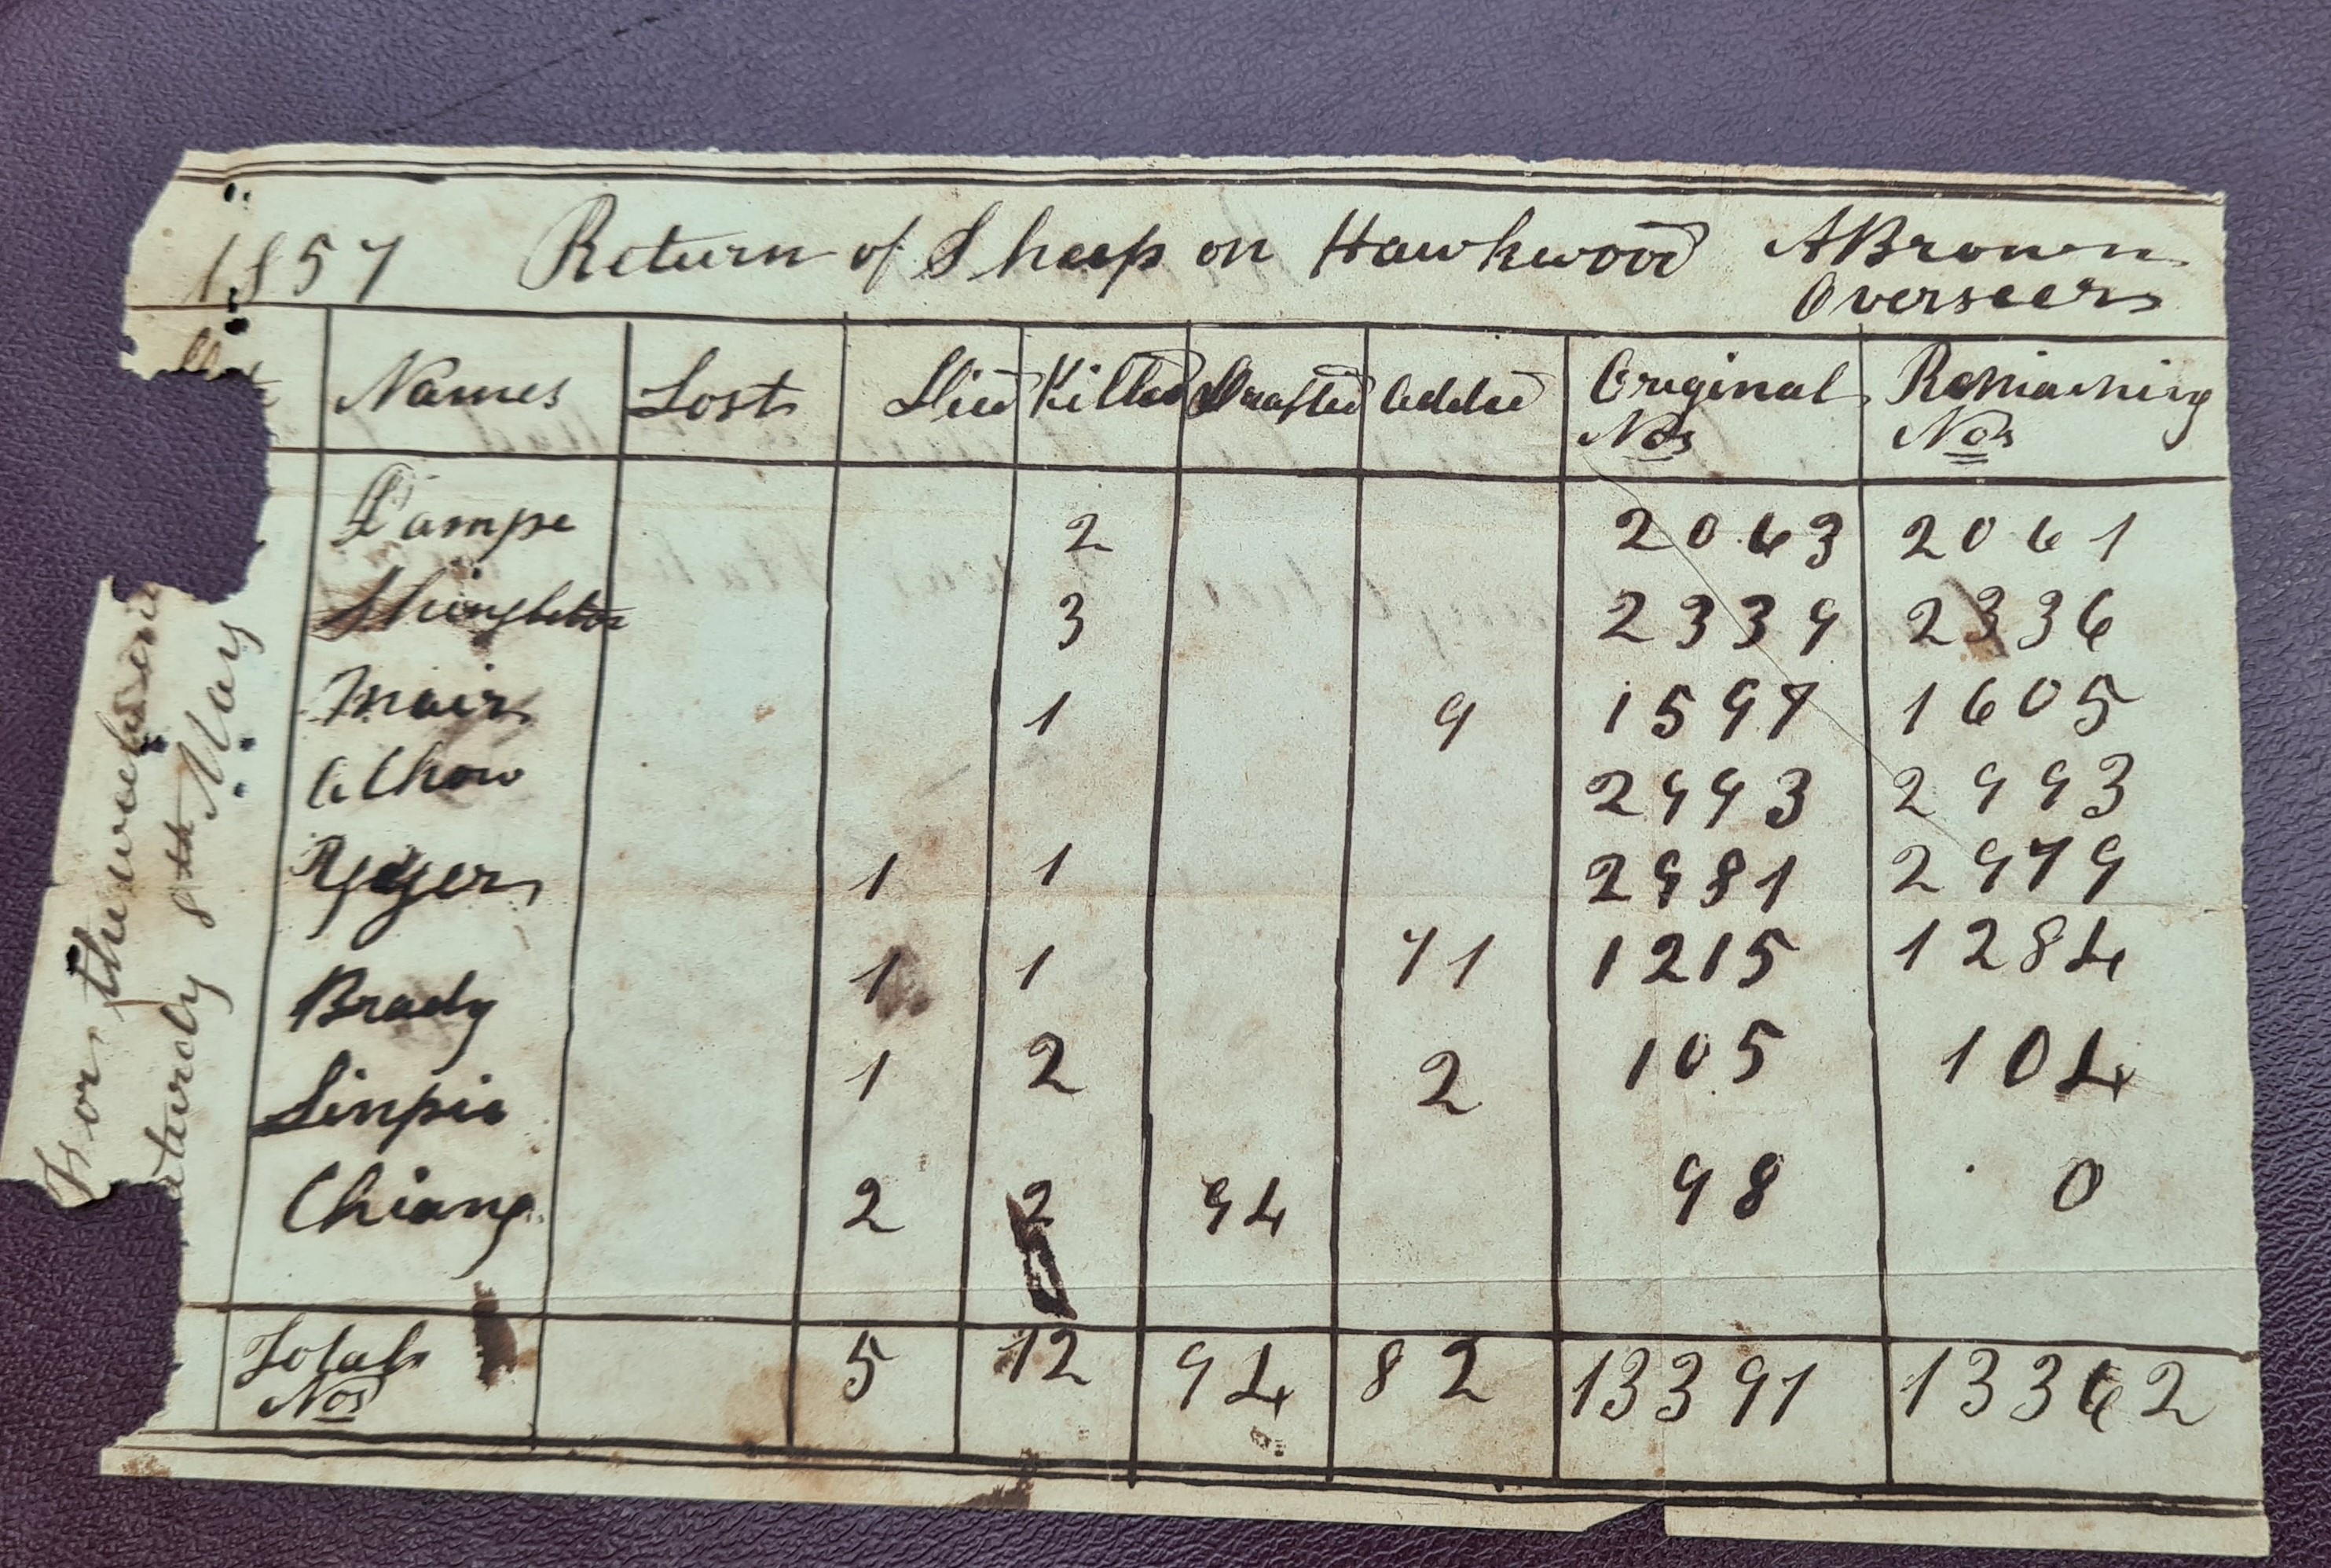 1857 Return of Sheep on Hawkwood A Brown
Overseer
Names Lost Died Killed Drafted Added Original Nos Remaining Nos
Pampe 2 2063 2061
Shingleton 3 2339 2336
Mair 1 9 1597 1605
Achow 2993 2993
Rydger 1 1 2981 2979
Brady 1 1 71 1215 1284
Linpie 1 2 2 105 104
Chiang 2 2 94 98 0
Total Nos 5 12 94 82 13391 13362
For the week
8th May